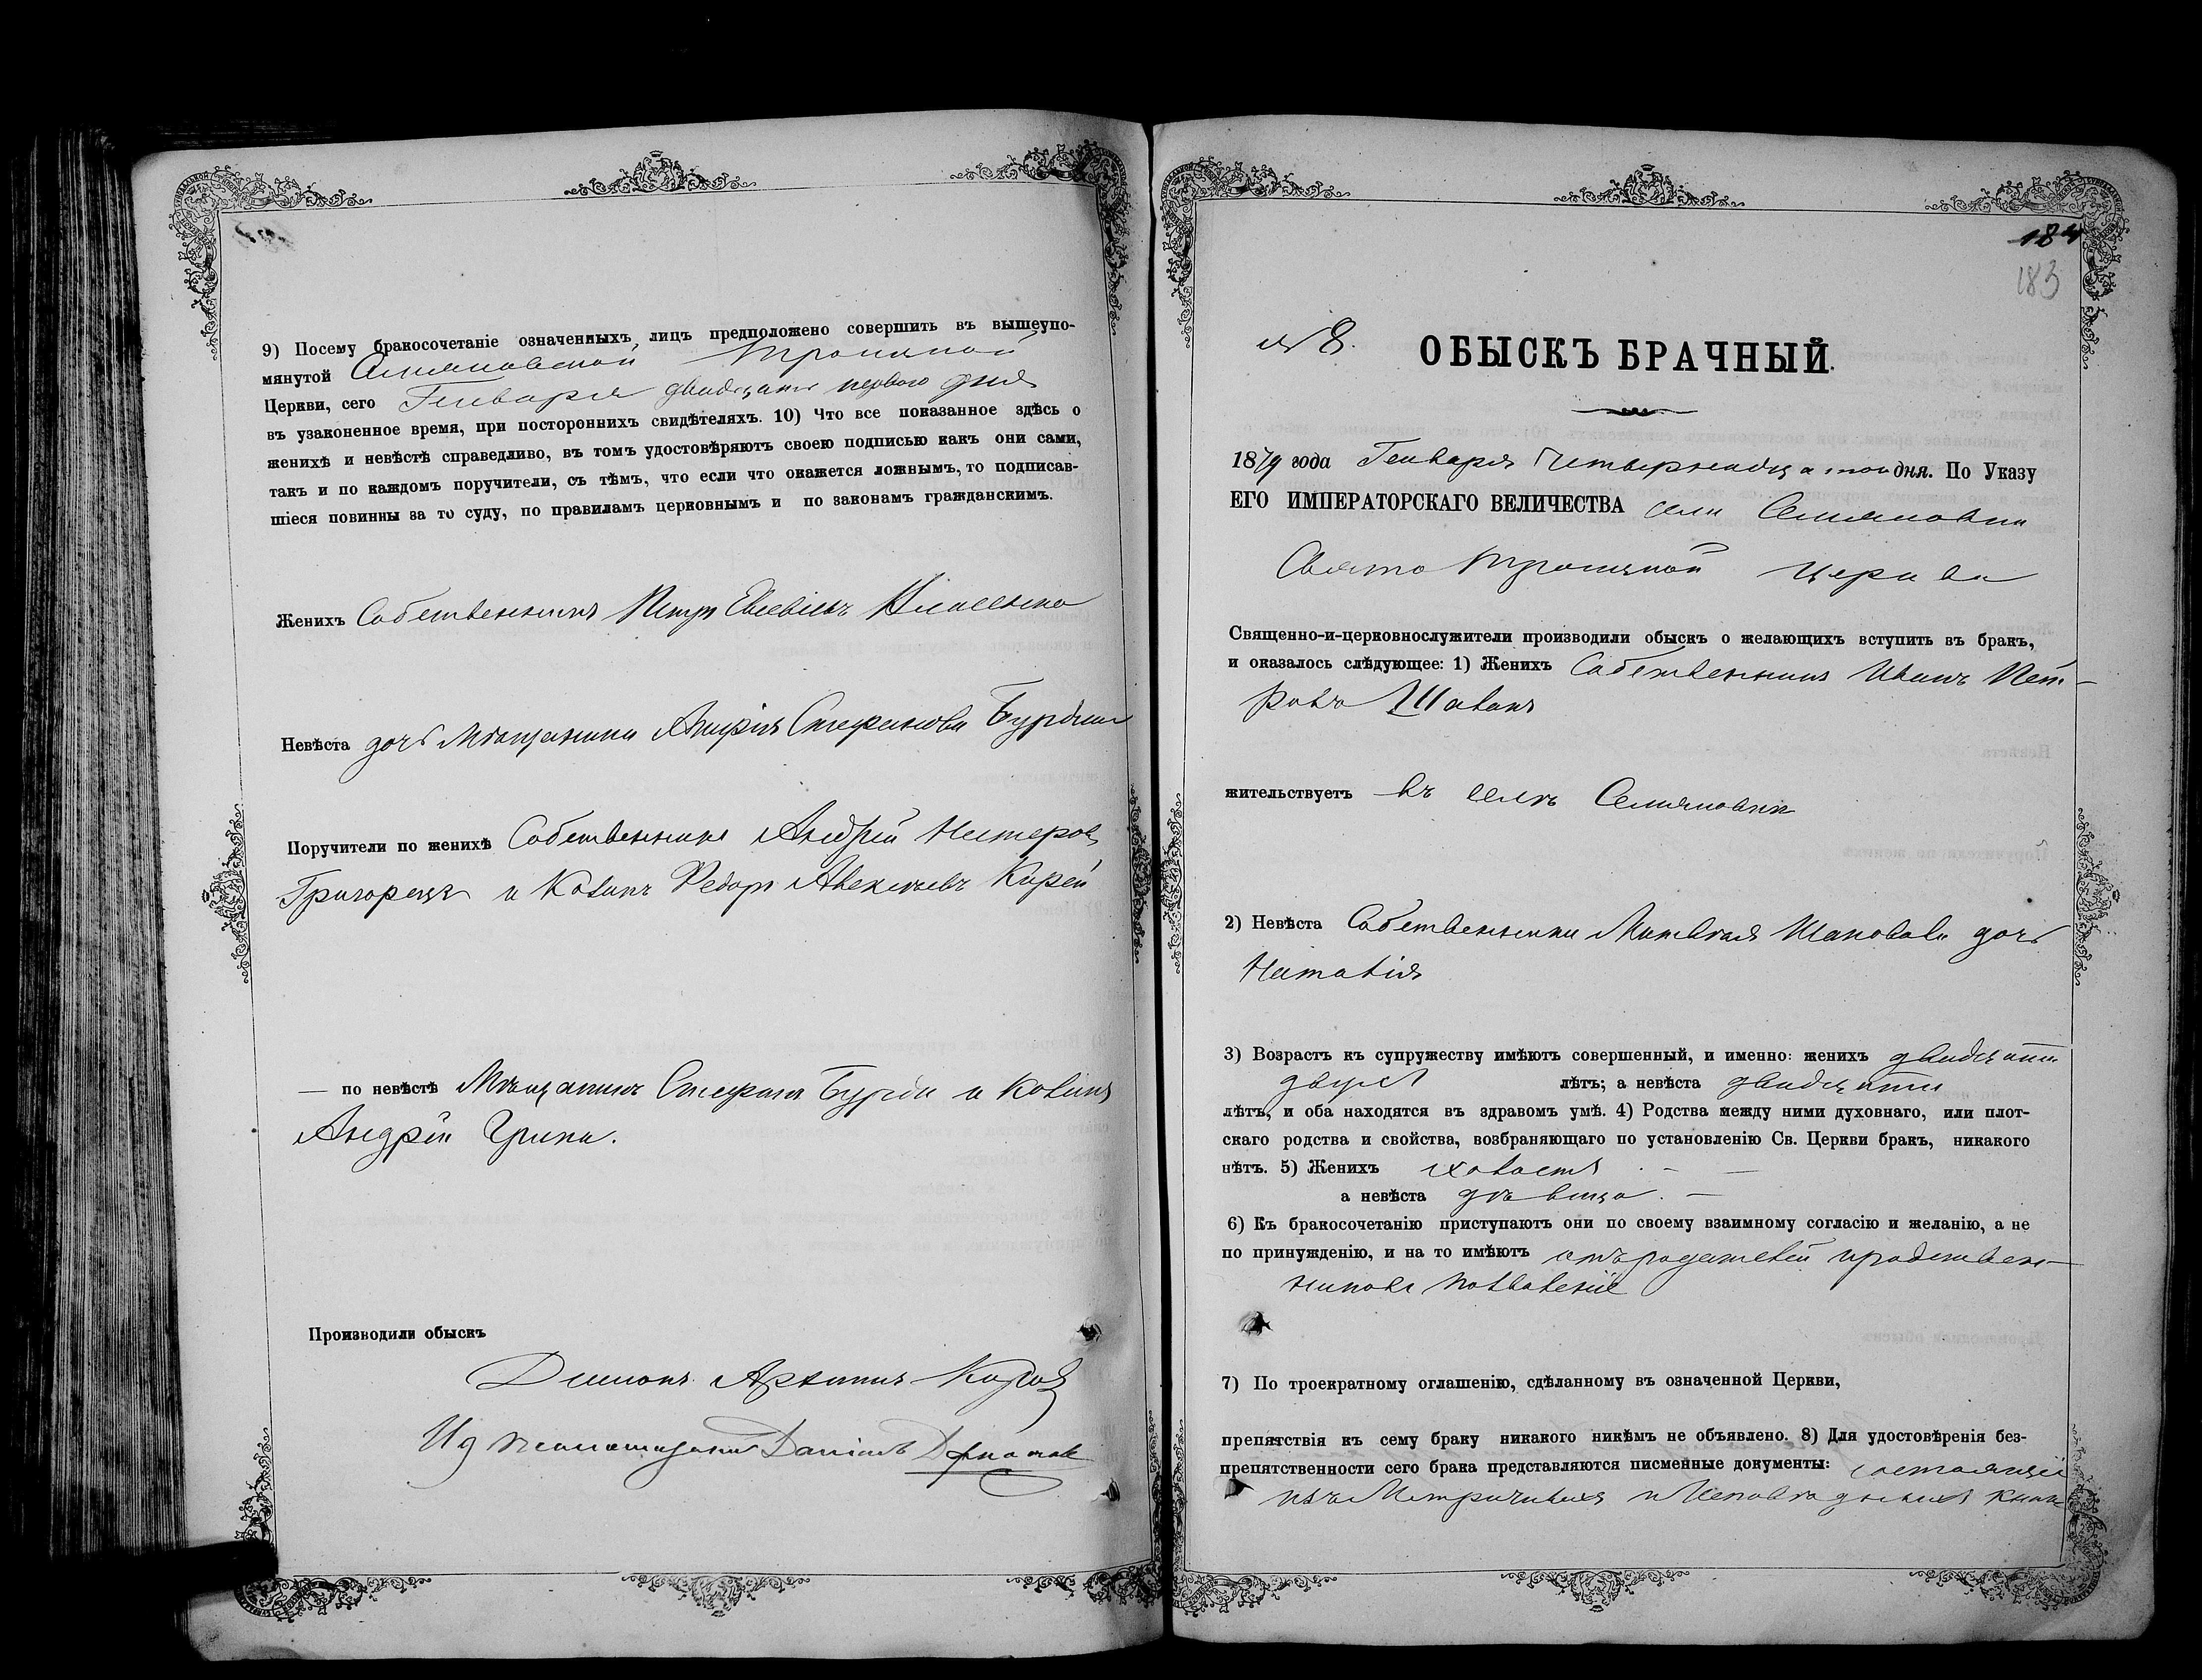 9) Посему бракосочетаніе означенныхъ лицъ предположено совершить въ вышеупо-
мянутой Семяновской Троицкой
Церкви, сего Генваря двадцать перваго дня
въ узаконенное время, при постороннихъ свидѣтеляхъ. 10) Что все показанное здѣсь о
женихѣ и невѣстѣ справедливо, въ томъ удостовѣряютъ своею подписью какъ они сами,
такъ и по каждомъ поручители, съ тѣмъ, что если что окажется ложнымъ, то подписав-
шіеся повинны за то суду, по правиламъ церковнымъ и по законамъ гражданскимъ.
Женихъ Собственникъ Петръ
Невѣста дочь мѣщанина Стефанова Бурдина
Поручители по женихѣ Собственникъ Андрей Нестеровъ
Григорецъ и Козакъ Федоръ Алексѣевъ Кирей
— по невѣстѣ Мѣщанинъ Стефанъ Бурда и Козакъ
Андрей
Производили обыскъ
183
№ 8.
ОБЫСКЪ БРАЧНЫЙ.
1879 года Генваря Четырнадцатого дня. По Указу
ЕГО ИМПЕРАТОРСКАГО ВЕЛИЧЕСТВА села Семяновки
Свято Троицкой Церкви
Священно-и-церковнослужители производили обыскъ о желающихъ вступить въ бракъ,
и оказалось слѣдующее: 1) Женихъ Собственникъ Иванъ Пет-
ровъ
жительствуетъ въ селѣ Семяновки
2) Невѣста Собственника Шаповала дочь
Наталія
3) Возрастъ къ супружеству имѣютъ совершенный, и именно: женихъ двадцати
двухъ лѣтъ; а невѣста двадцати
лѣтъ, и оба находятся въ здравомъ умѣ. 4) Родства между ними духовнаго, или плот-
скаго родства и свойства, возбраняющаго по установленію Св. Церкви бракъ, никакого
нѣтъ. 5) Женихъ холостъ
а невѣста дѣвица.
6) Къ бракосочетанію приступаютъ они по своему взаимному согласію и желанію, а не
по принужденію, и на то имѣютъ отъ родителей и родствен-
никовъ позволеніе
7) По троекратному оглашенію, сдѣланному въ означенной Церкви,
препятствія къ сему браку никакого никѣмъ не объявлено. 8) Для удостовѣренія без-
препятственности сего брака представляются писменные документы: состоящіе
изъ Метричныхъ и Исповѣдныхъ книгъ